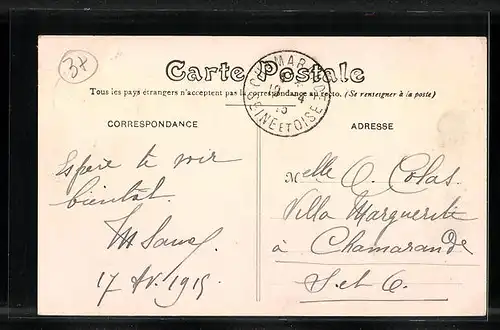 3x
Carte Postale
Tous les pays étrangers n'acceptent pas la correspondance au recto. (Se renseigner à la poste)
CHAMARANDE
19 4
15
SEINE ET OISE
CORRESPONDANCE
ADRESSE
Espère te voir
bientôt.
17 Av. 1915
Melle O. Colas.
Villa Marguerite
à Chamarande
S. et O.